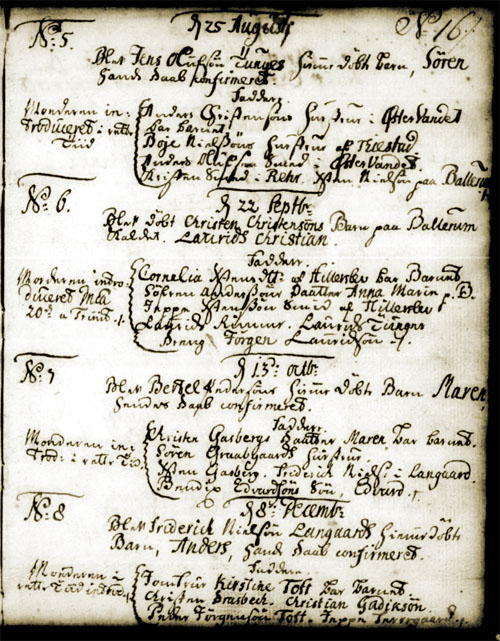 No. 5.
d 25 Augusti
No 16.
Blev Jens Olufsøn Tünges hiemme döbte barn, Sören
hands daab confirmeret.
Faddere
Moderen in-
troduceret i rette
Tiid
Anders Christensøns hustrue i Østervandet
bar barnet.
Boje Nielsøns hustrue af Træestad
Anders Nielsøn Smed i Østervandet
i Rehr. Nielsøn paa Ballerum
No. 6.
d 22 Septbr
Blev döbt Christen Christensöns Barn paa Ballerum
kaldet. Laurids Christian.
Faddere.
Moderen intro-
duceret
20de a Trinit.
Cornelia af Hillerslev bar Barnet
Sefren Andersøns Daatter Anna Marie
Jeppe Smed af Hillerslev
Laurids Laurids Tünges
Jörgen Lauridsøn
No. 7
d 13de octbr
Blev Bertel Andersøns hiemme döbte Barn Maren,
hendes daab confirmeret.
Faddere.
Moderen in-
trod: i rette Tiid
Christen Gasbergs Daatter Maren bar barnet.
Sören Graabygaards hustrue
Gasberg. Frederick Niels: i Langaard.
Bendix Edvardsöns Søn, Edvard.
No. 8
d 8de Decembr
Blev Friderich Nielsøn Langaards hiemmedöbte
Barn, Anders, hands daab confirmeret.
Faddere
Moderen i
rette Tiid introd:
Jomfrue Kirstine Tott bar barnet
Christen Brasbech. Christian Gadiksøn.
Peder Jörgensøn Tott. Jeppe